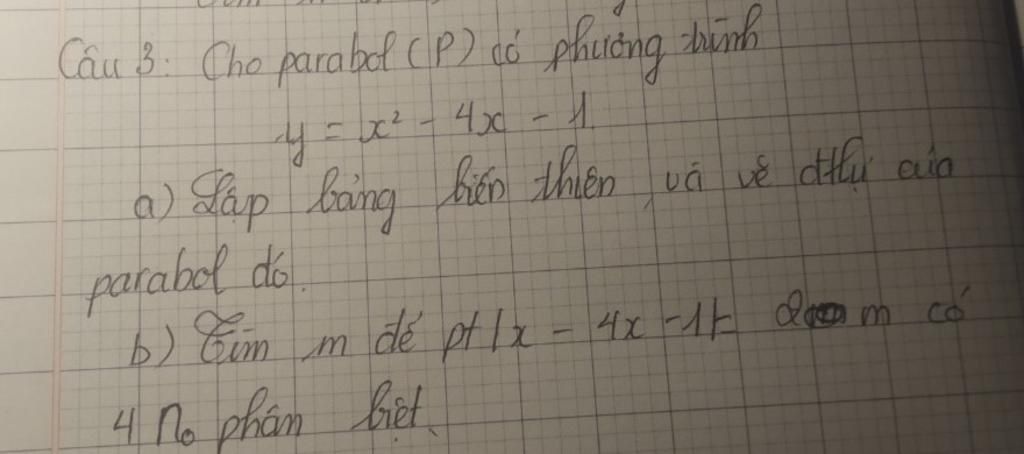 Câu 3: Cho parabol (P) có phương trình
y = x² - 4x - 1
a) Lập bảng biến thiên, và vẽ đthị của
parabol đó.
b) Tìm m để pt |x - 4x - 1| = m có
4 n₀ phân biệt.